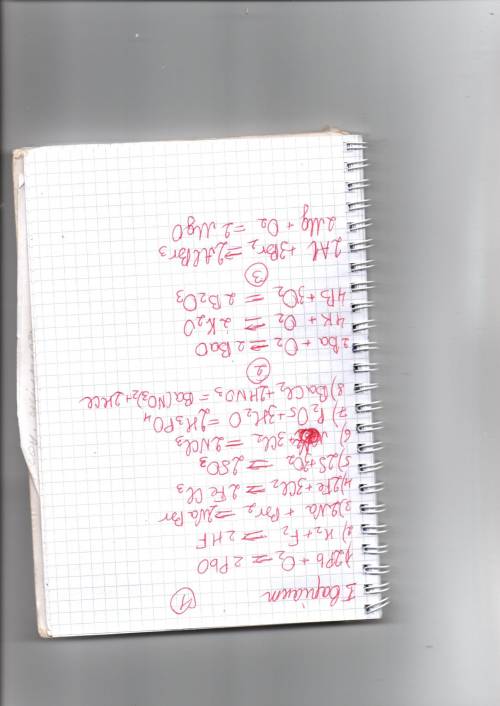 I варіант
1
1) 2Pb + O₂ = 2PbO
2) H₂ + F₂ = 2HF
3) 2Na + Br₂ = 2NaBr
4) 2Fe + 3Cl₂ = 2FeCl₃
5) 2S + 3O₂ = 2SO₃
6) + 3Cl₂ = 2NCl₃
7) P₂O₅ + 3H₂O = 2H₃PO₄
8) BaCl₂ + 2HNO₃ = Ba(NO₃)₂ + 2HCl
2
2Ba + O₂ = 2BaO
4K + O₂ = 2K₂O
4B + 3O₂ = 2B₂O₃
3
2Al + 3Br₂ = 2AlBr₃
2Mg + O₂ = 2MgO